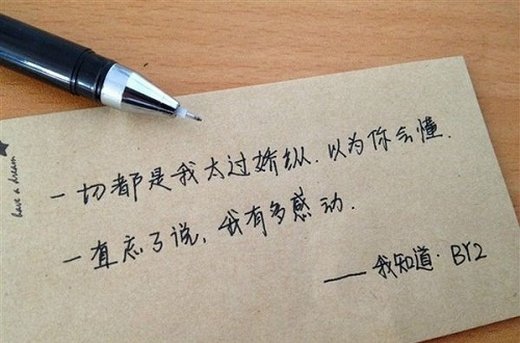 have a dream
一切都是我太过娇纵.以为你会懂.
一直忘了说,我有多感动.
——我知道·BY2